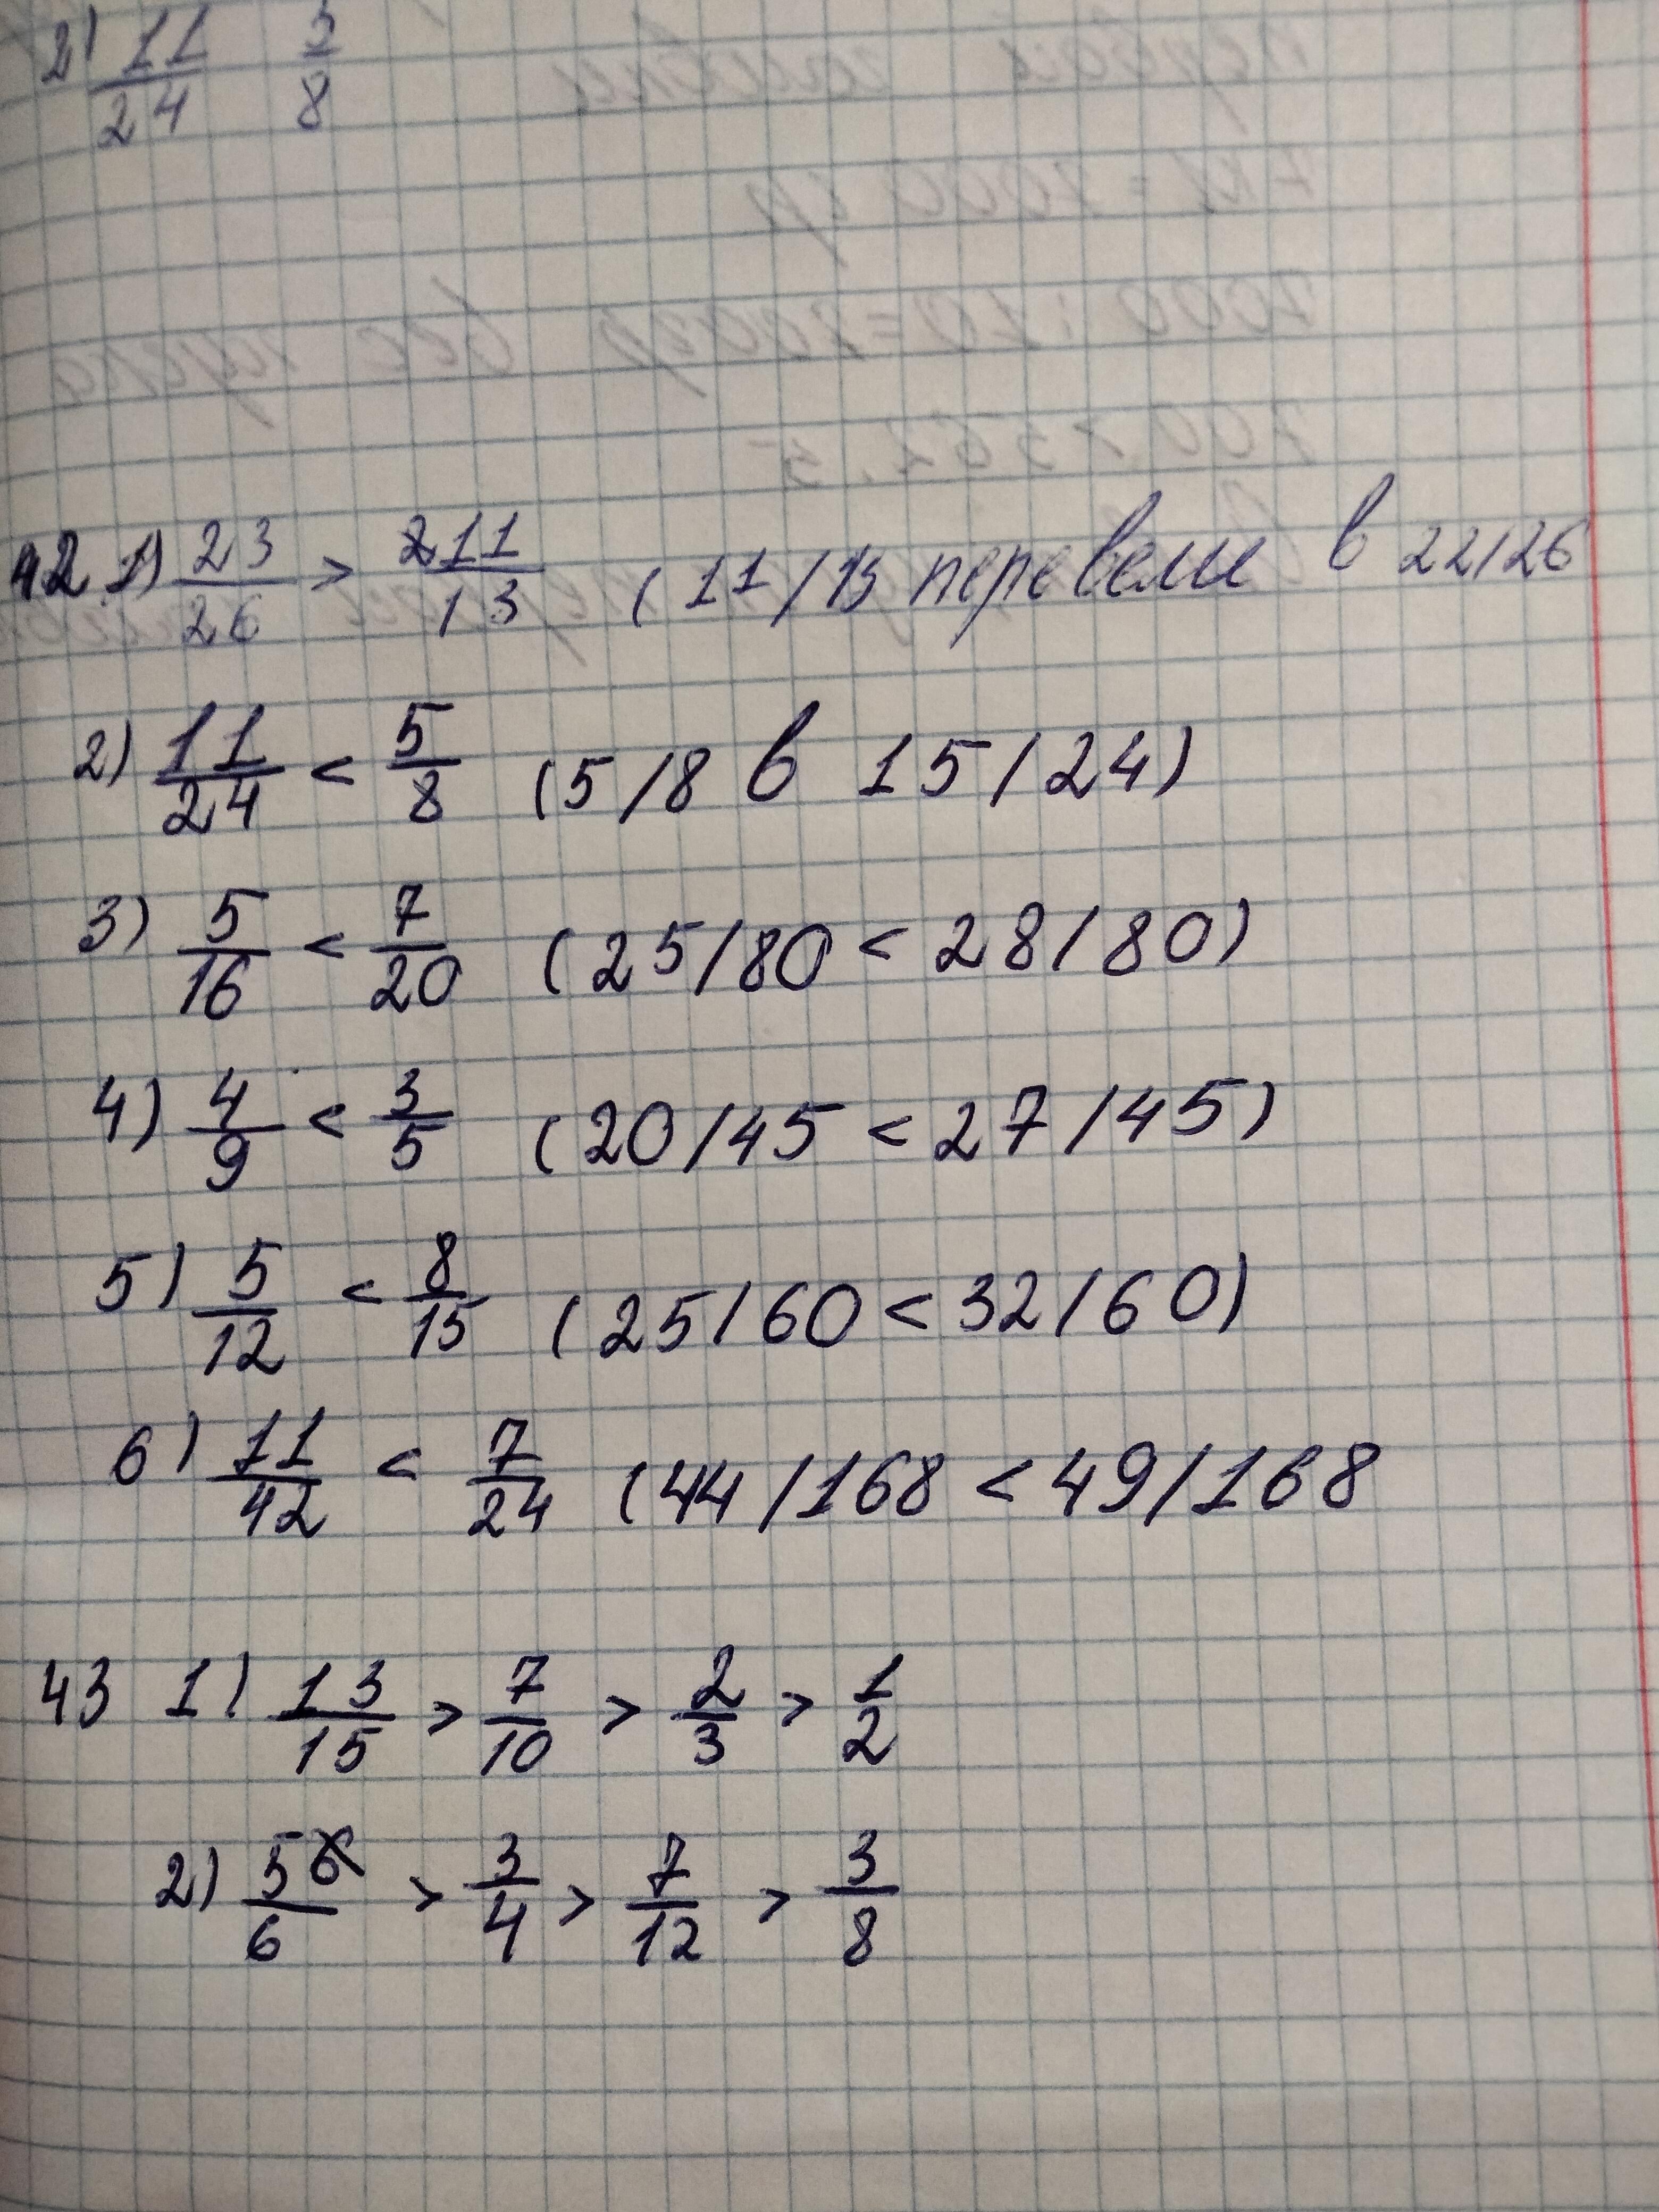 2) 11/24 5/8
42 1) 23/26 > 11/13 (11/13 перевели в 22/26
2) 11/24 < 5/8 (5/8 в 15/24)
3) 5/16 < 7/20 (25/80 < 28/80)
4) 4/9 < 3/5 (20/45 < 27/45)
5) 5/12 < 8/15 (25/60 < 32/60)
6) 11/42 < 7/24 (44/168 < 49/168
43 1) 13/15 > 7/10 > 2/3 > 1/2
2) 5/6 > 3/4 > 7/12 > 3/8